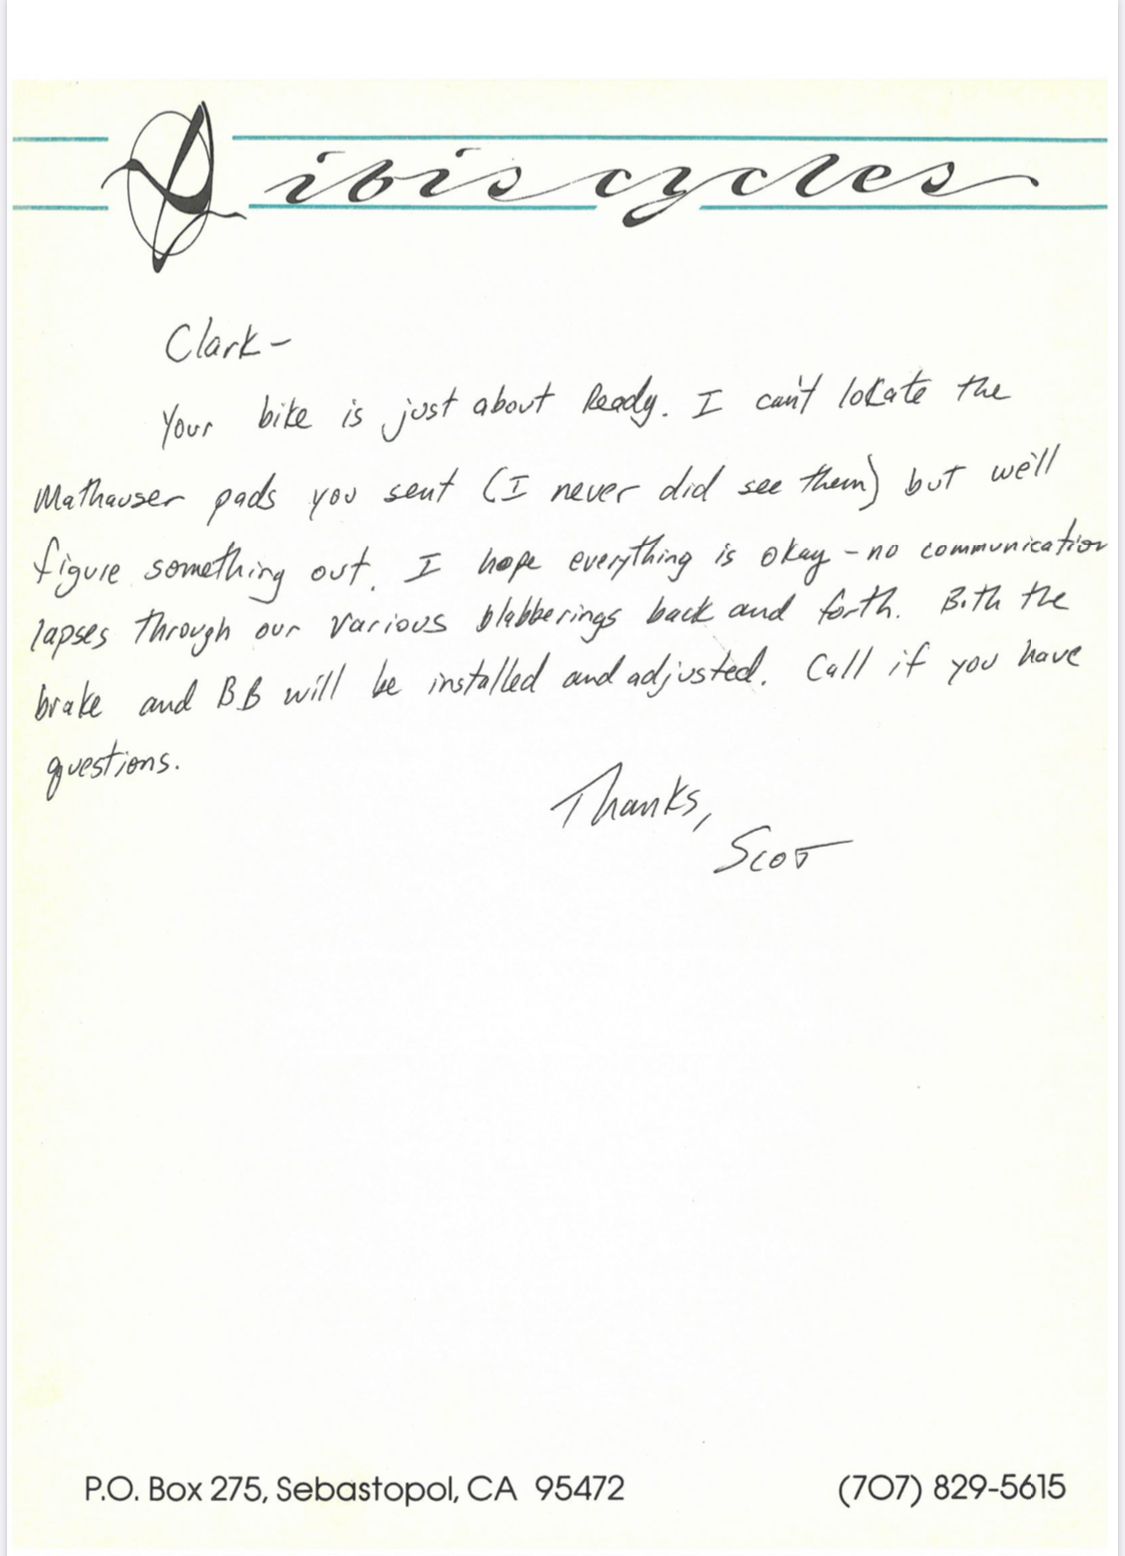 ibis cycles
Clark-
Your bike is just about Ready. I can't loKate the
Mathauser pads you sent (I never did see them) but we'll
figure something out. I hope everything is okay - no communication
lapses through our various blabberings back and forth. Both the
brake and BB will be installed and adjusted. Call if you have
questions.
Thanks,
Scot
P.O. Box 275, Sebastopol, CA 95472 (707) 829-5615